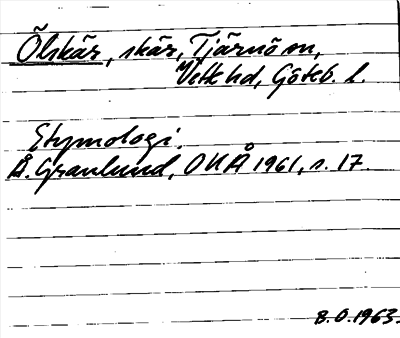 Ölskär, skär, Tjärnö sn,
Vette hd, Göteb. l.
Etymologi.
Å. Granlund, OUÅ 1961, s. 17.
B.O.1963.